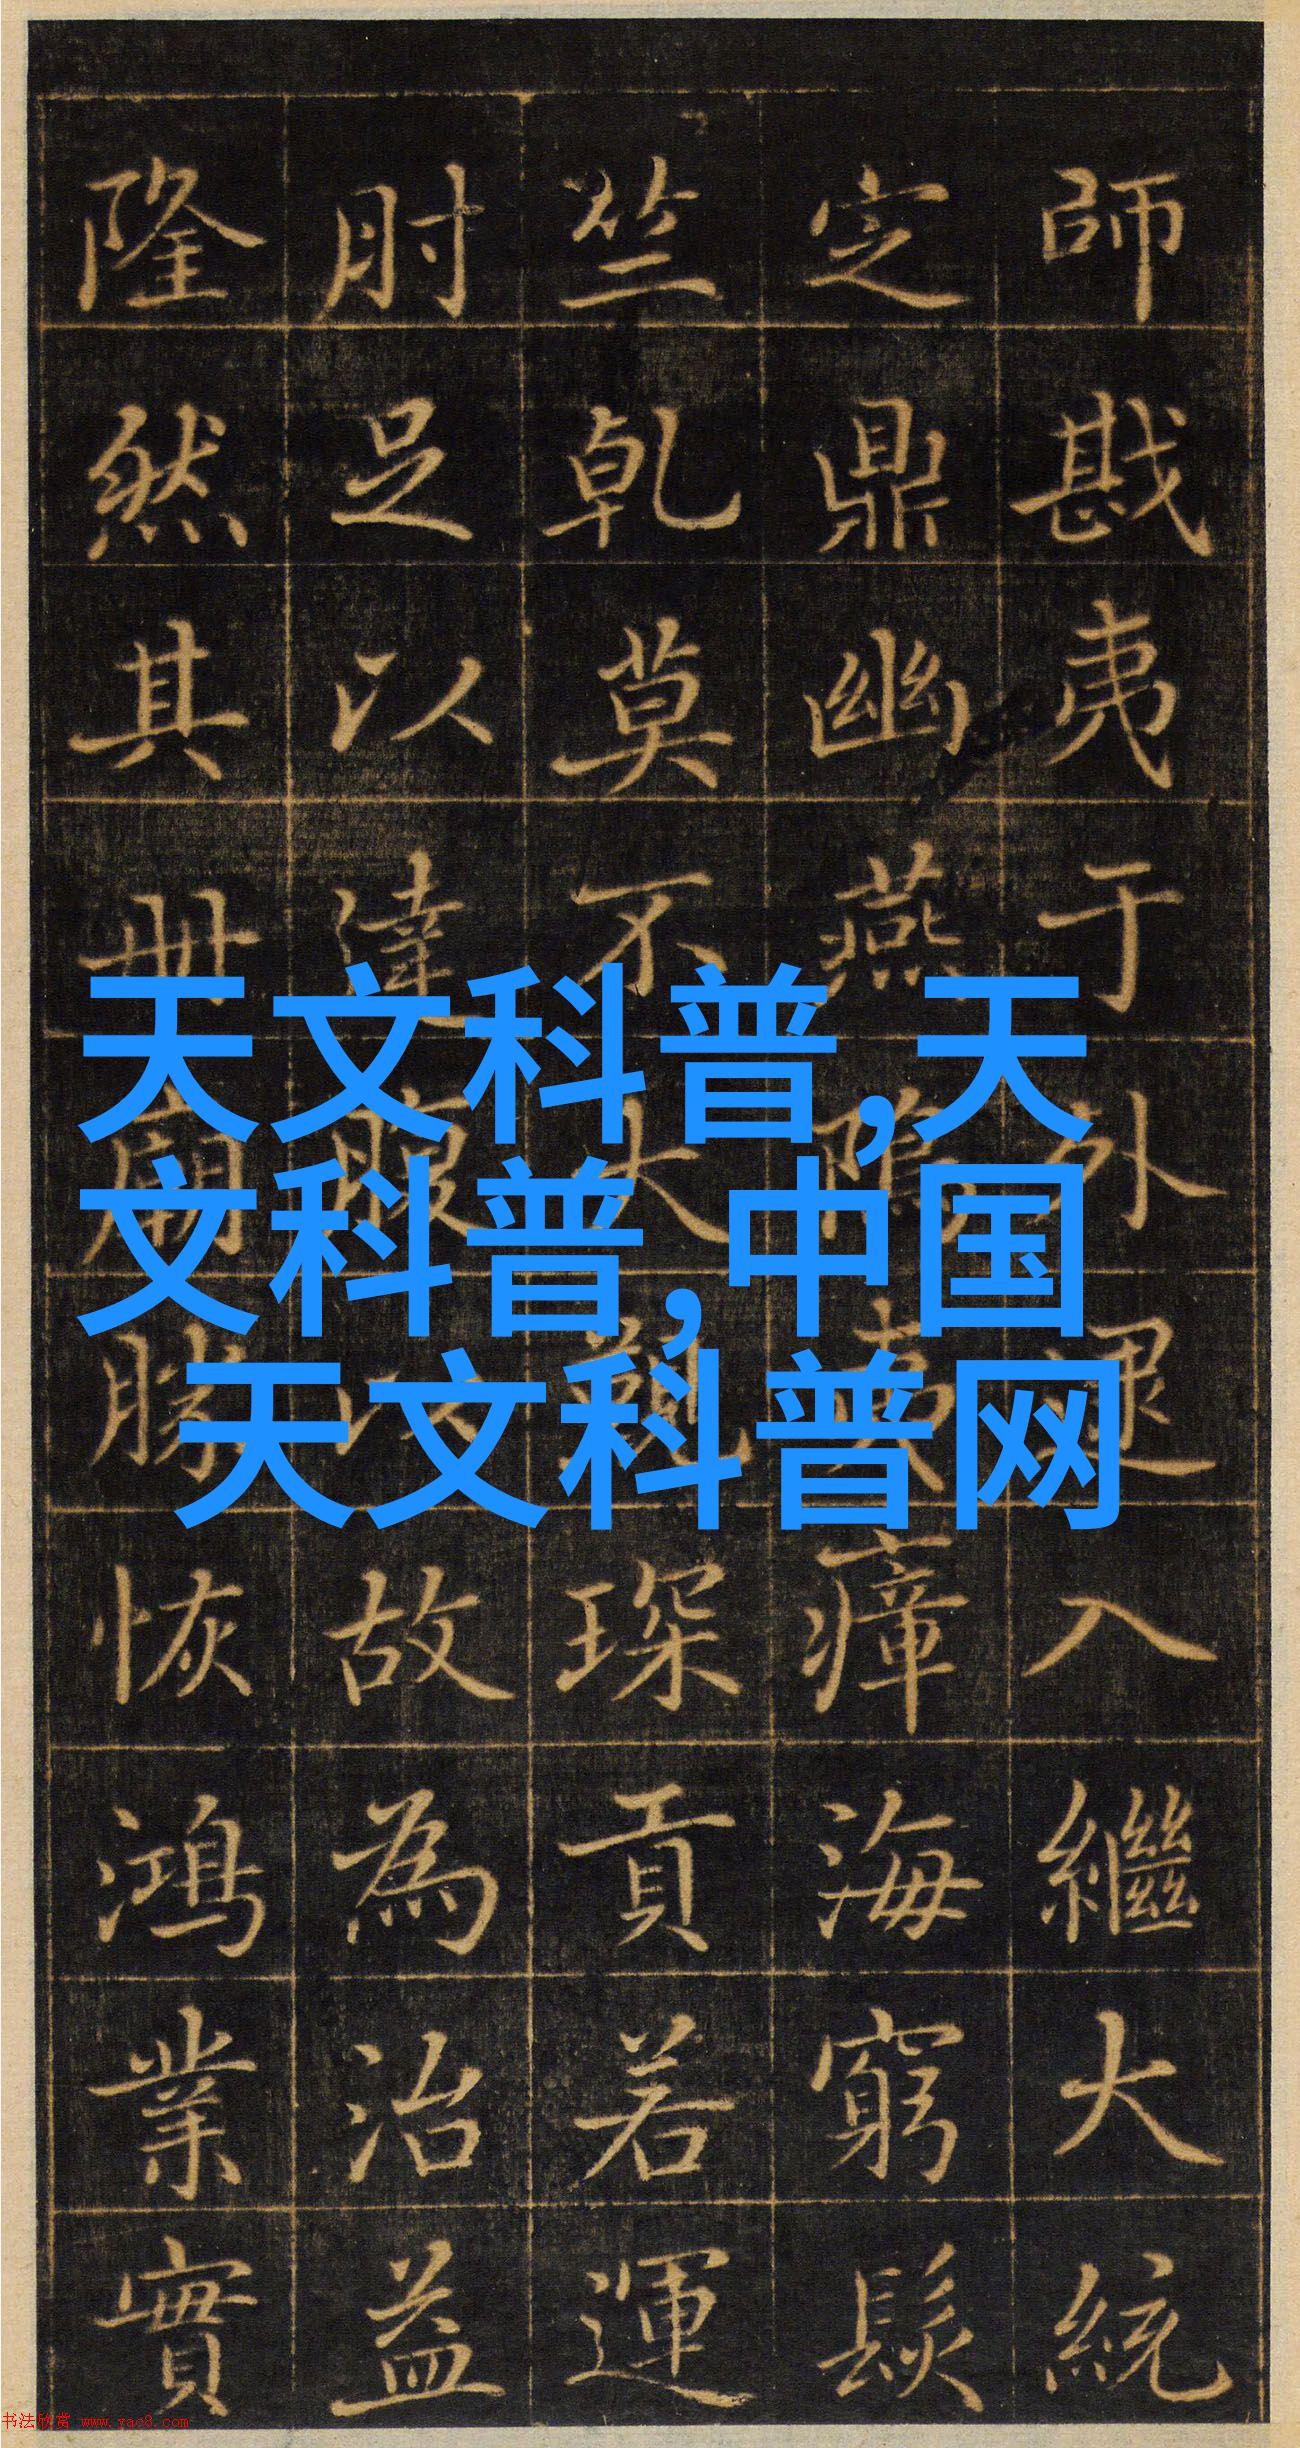 師戡夷于外逮入繼大統
定鼎幽燕夷瘴海窮髮
竺乾莫不琛貢若運
肘足以違以故為治益
隆然其冊廟勝恢鴻業實
天文科普,天
文科普,中国
天文科普网
书法欣赏 www.yac8.com